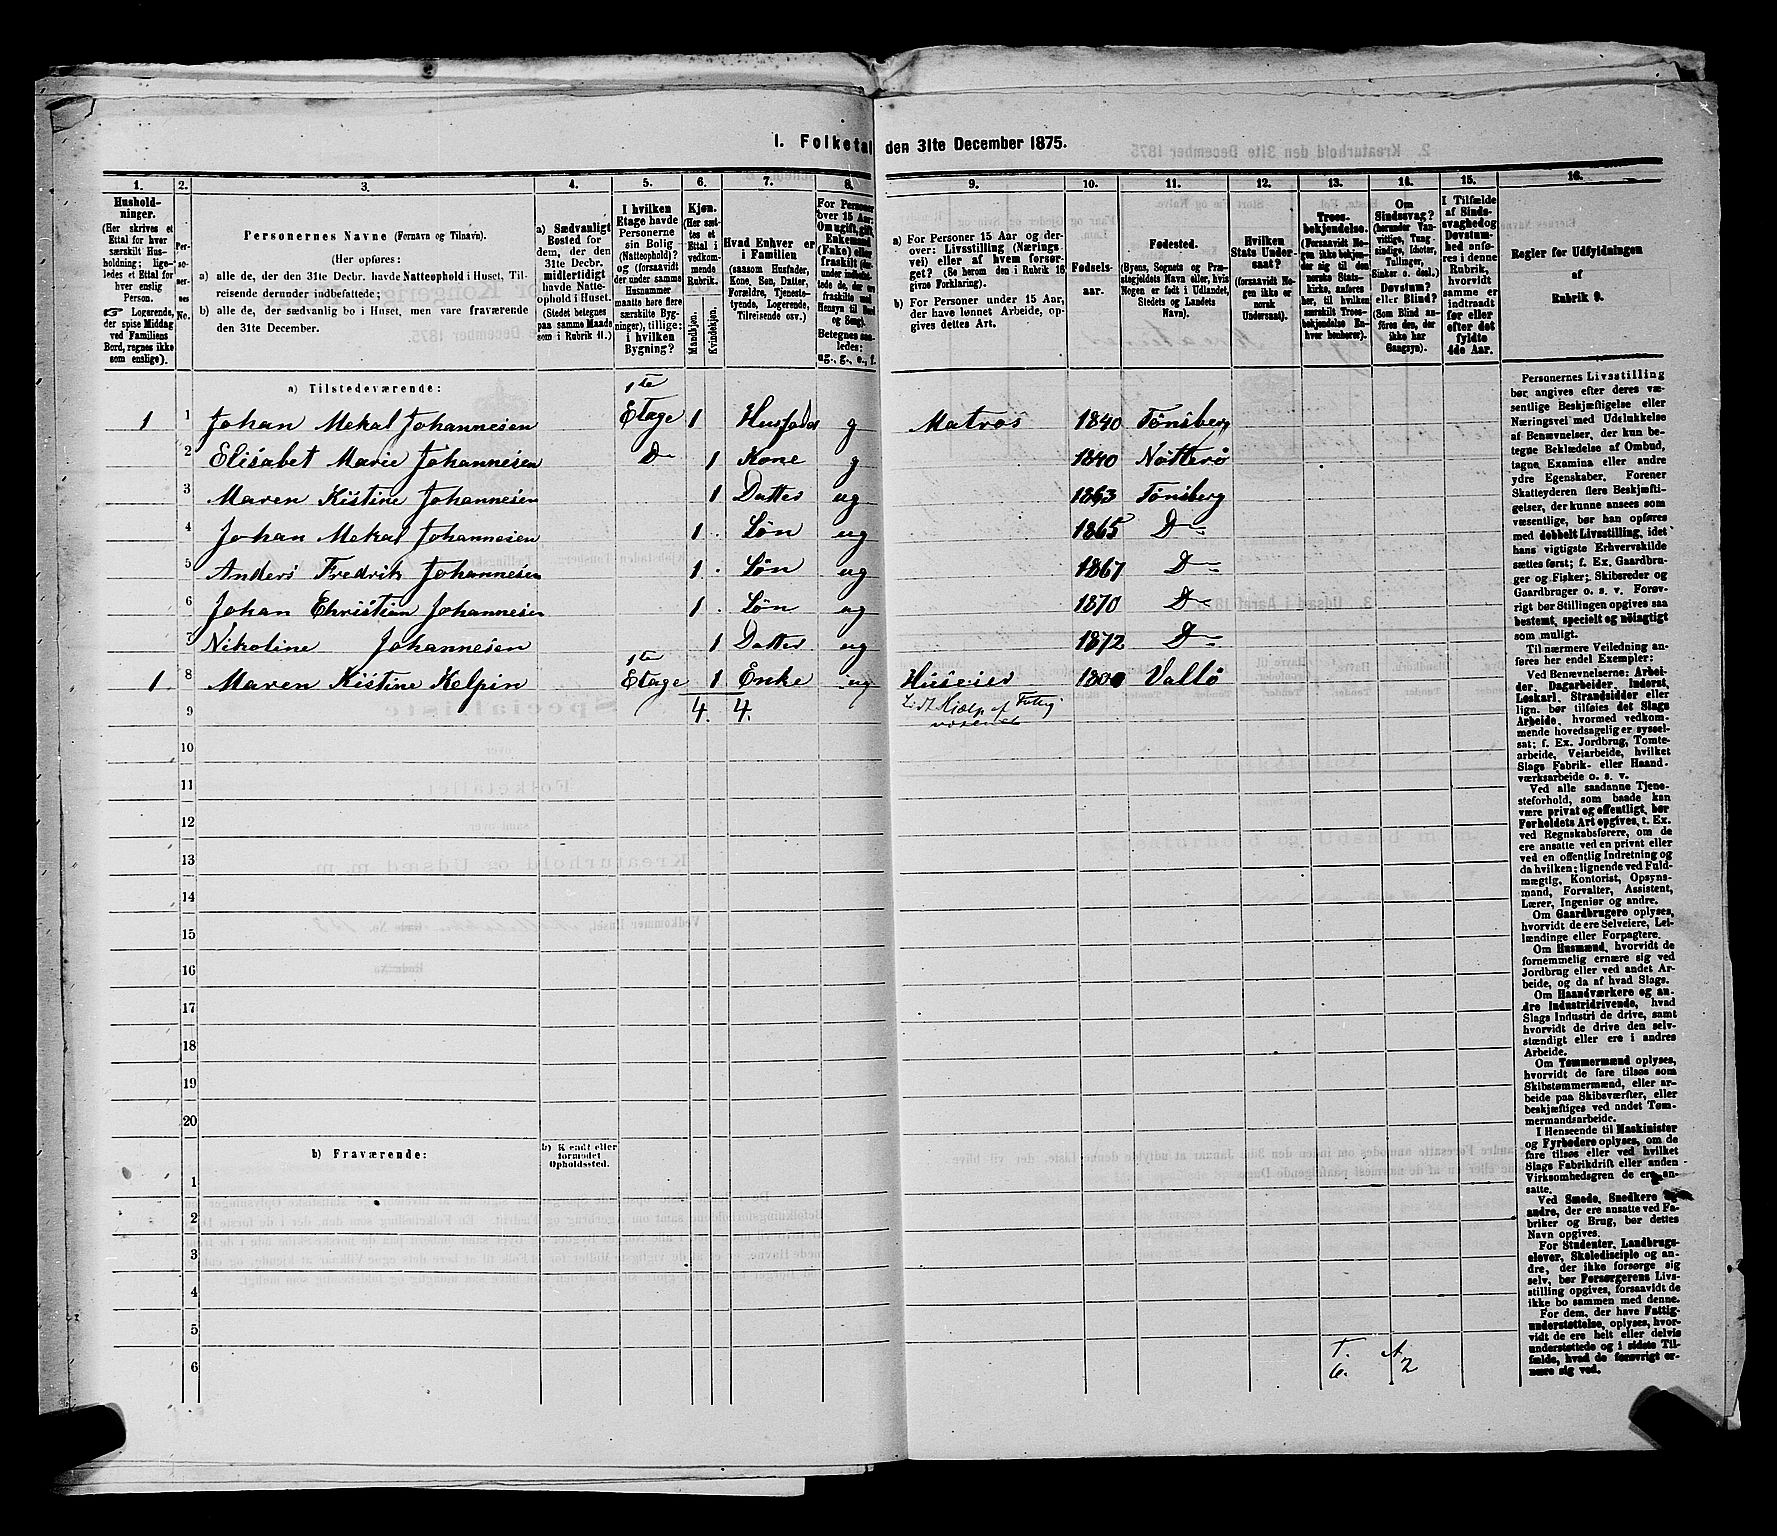 1. Folketal den 31te December 1875.
1. 2. 3. 4. 5. 6. 7. 8. 9. 10. 11. 12. 13. 14. 15. 16.
Hushold-
ninger.
(Her skrives et
Ettal for hver
særskilt Hus-
holdning; lige-
ledes et Ettal for
hver enslig
Person.
☞ Logerende,
der spise Middag
ved Familiens
Bord, regnes ikke
som enslige).
Per-
so-
ner-
nes
No.
Personernes Navne (Fornavn og Tilnavn).
(Her opføres:
a) alle de, der den 31te Decbr. havde Natteophold i Huset, Til-
reisende derunder indbefattede;
b) alle de, der sædvanlig bo i Huset, men vare fraværende
den 31te December.
a) Sædvanligt
Bosted for
dem, der den
31te Decbr.
midlertidigt
havde Natte-
ophold i Huset.
(Stedet betegnes
paa samme Maade
som i Rubrik 11.)
I hvilken
Etage havde
Personerne
sin Bolig
(Natteophold)?
og (forsaavidt
der under samme
Husnummer
maatte høre flere
særskilte Byg-
ninger), tillige:
i hvilken
Bygning?
Kjøn.
(Her sæt-
tes et
Ettal i
vedkom-
mende
Rubrik.
Mandkjøn.
Kvindekjøn.
Hvad Enhver er
i Familien
(saasom Husfader,
Kone, Søn, Datter,
Forældre, Tjeneste-
tyende, Logerende,
Tilreisende osv.)
For Personer
over 15 Aar:
Om ugift, gift,
Enkemand
(Enke) eller
fraskilt
Betegnes saa-
ledes:
ug., g., e., f.
a) For Personer 15 Aar og der-
over: Livsstilling (Nærings
vei) eller af hvem forsør-
get? (Se herom den i Rubrik 16
givne Forklaring).
b) For Personer under 15 Aar,
der have lønnet Arbeide, op-
gives dettes Art.
Fødsels-
aar.
Fødested.
(Byens, Sognets og Præ-
stegjeldets Navn eller, hvis
Nogen er født i Udlandet,
Stedets og Landets
Navn).
Hvilken
Stats Under-
saat?
(forsaavidt No-
gen ikke er
norsk
Undersaat).
Troes-
bekjendelse.
(Forsaavidt No-
gen ikke bekjen-
der sig til den
norske Stats-
kirke, anføres
her, til hvilken
særskilt Troes-
bekjendelse En-
hver henhører).
Om
Sindssvag?
(herunder Van-
vittige, Tung-
sindige, Idioter,
Tullinger,
Sinker o. desl.)
Døvstum?
eller Blind?
(Som Blind an-
føres den, der
ikke har
Gangsyn).
I Tilfælde
af Sinds-
svaghed og
Døvstum-
hed anfø-
res i denne
Rubrik,
hvorvidt
samme er
indtraadt
før eller
efter det
fyldte
4de Aar.
Regler for Udfyldningen
af
Rubrik 9.
a) Tilstedeværende:
1 1 Johan Mekal Johannesen 1te Etage 1 Husfader g Matros 1840 Tønsberg
2 Elisabet Marie Johannesen D 1 Kone g 1840 Nøtterø
3 Maren Kistine Johannesen 1 Datter ug 1863 Tønsberg
4 Johan Mekal Johannesen 1 Søn ug 1865 D
5 Anders Fredrik Johannesen 1 Søn ug 1867 D
6 Johan Christian Johannesen 1 Søn ug 1870 D
7 Nikoline Johannesen 1 Datter ug 1872 D
1 8 Maren Kistine Kelpin 1te Etage 1 Enke ug Valló
9 4. 4. Hjælp af
10
11
12
13
14
15
16
17
18
19
20
b) Fraværende: b) Kjendt eller
formodet
Opholdssted.
1
2
3
4
5
6
T. 6. A 2
Personernes Livsstilling
bør angives efter deres væ-
sentlige Beskjæftigelse eller
Næringsvei med Udelukkelse
af Benævnelser, der kun be-
tegne Beklædelse af Ombud,
tagne Examina eller andre
ydre Egenskaber. Forener
Skatteyderen flere Beskjæfti-
gelser, der kunne ansees som
væsentlige, bør han opføres
med dobbelt Livsstilling, idet
hans vigtigste Erhvervskilde
sættes først; f. Ex. Gaardbru-
ger og Fisker; Skibsreder og
Gaardbruger o. s. v. Forøv-
rigt bør Stillingen opgives saa
bestemt, specielt og nøiagtigt
som muligt.
Til nærmere Veiledning an-
føres her endel Exempler:
Ved Benævnelserne: Arbei-
der, Dagarbeider, Inderst,
Løskarl, Strandsidder eller
lign. bør tilføies det Slags
Arbeide, hvormed vedkom-
mende hovedsagelig er syssel-
sat; f. Ex. Jordbrug, Tomte-
arbeide, Veiarbeide, hvilket
Slags Fabrik- eller Haand-
værksarbeide o. s. v.
Ved alle saadanne Tjene-
steforhold, som baade kan
være privat og offentligt, bør
Forholdets Art opgives, t. Ex.
ved Regnskabsførere, om de
ere ansatte ved en privat eller
ved en offentlig Indretning og
da hvilken; lignende ved Fuld-
mægtig, Kontorist, Opsyns-
mand, Forvalter, Assistent,
Lærer, Ingeniør og andre.
Om Gaardbrugere oplyses,
hvorvidt de ere Selveiere, Lei-
lændinge eller Forpagtere.
Om Husmænd, hvorvidt de
fornemmelig ernære sig ved
Jordbrug eller ved andet Ar-
beide, og da af hvad Slags.
Om Haandværkere og an-
dre Industridrivende, hvad
Slags Industri de drive, samt
hvorvidt de drive den selv-
stændigt eller ere i andres
Arbeide.
Om Tømmermænd oplyses,
hvorvidt de fare tilsøs som
Skibstømmermænd, eller ar-
beide paa Skibsværfter, eller
beskjæftiges ved andet Tøm-
mermandsarbeide.
I Henseende til Maskinister
og Fyrbødere oplyses, om de
fare tilsøs eller ved hvilket
Slags Fabrikdrift eller anden
Virksomhedsgren de ere an-
satte.
Ved Smede, Snedkere og
andre, der ere ansatte ved Fa-
briker og Brug, bør dettes
Navn opgives.
For Studenter, Landbrugs-
elever, Skoledisciple og an-
dre, der ikke forsørge sig
selv, bør Forsørgerens Livs-
stilling opgives, forsaavidt de
ikke bo sammen med denne.
For dem, der have Fattig-
understøttelse, oplyses, hvor-
vidt de ere helt eller delvis
understøttede og i sidste Til-
fælde, hvad de forøvrigt er-
nære sig ved.